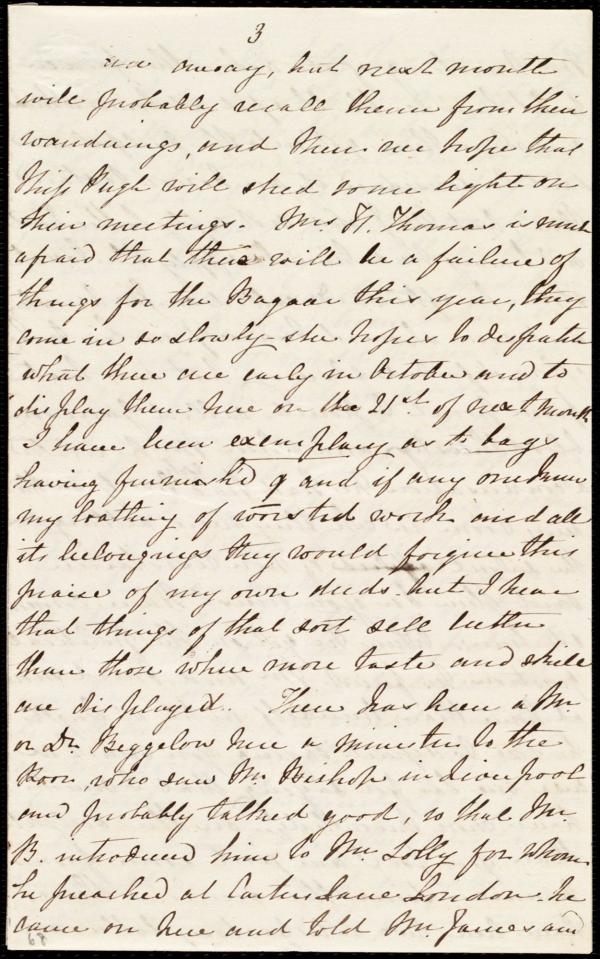 3
are away, but next month
will probably recall them from their
wanderings, and then we hope that
Miss Pugh will shed some light on
their meetings. Mrs H. Thomas is much
afraid that there will be a failure of
things for the Bazaar this year, they
come in so slowly - she hopes to despatch
what there are early in October and to
display them here on the 21st. of next month
I have been exemplary as to bags
having furnish'd 9 and if any one knew
my loathing of worsted work and all
its belongings they would forgive this
praise of my own deeds. but I hear
that things of that sort sell better
than those where more taste and skill
are displayed. There has been a Mr.
or Dr. Beggelow here a minister to the
Poor, who saw Mr. Bishop in Liverpool
and probably talked good, so that Mr.
B. introduced him to Mr. Solly for whom
he preached at Carter Lane London. he
came on here and told Mr. James and
68